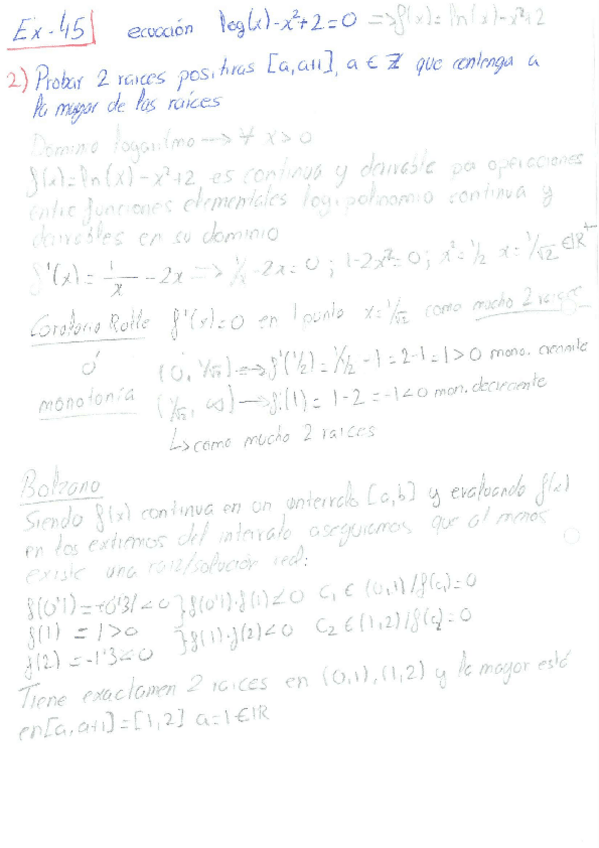 Ex-45 ecuación log(x)-x²+2=0 => f(x)=ln(x)-x²+2
2) Probar 2 raices positivas [a,a+1], a ∈ Z que contenga a
la mayor de las raíces
Dominio logaritmo → ∀ x>0
f(x)=ln(x)-x²+2 es continua y derivable por operaciones
entre funciones elementales log, polinomio continua y
derivables en su dominio
f'(x)= 1/x -2x => 1/x -2x=0 ; 1-2x²=0 ; x²=1/2 x=1/√2 ∈ℝ⁺
Corolario Rolle f'(x)=0 en 1 punto x=1/√2 como mucho 2 raices
ó (0, 1/√2) → f'(1/2)=1/½ -1=2-1=1>0 mono. creciente
monotonía (1/√2, ∞) → f'(1)=1-2=-1<0 mon. decreciente
↳ como mucho 2 raices
Bolzano
Siendo f(x) continua en un intervalo [a,b] y evaluando f(x)
en los extremos del intervalo aseguramos que al menos
existe una raiz/solución real:
f(0'1)=-0'31<0 } f(0'1)·f(1)<0 C₁ ∈ (0,1)/f(c₁)=0
f(1) = 1>0 } f(1)·f(2)<0 C₂ ∈ (1,2)/f(c₂)=0
f(2)=-1'3<0
Tiene exactamen 2 raices en (0,1),(1,2) y la mayor está
en [a,a+1]=[1,2] a=1∈ℝ